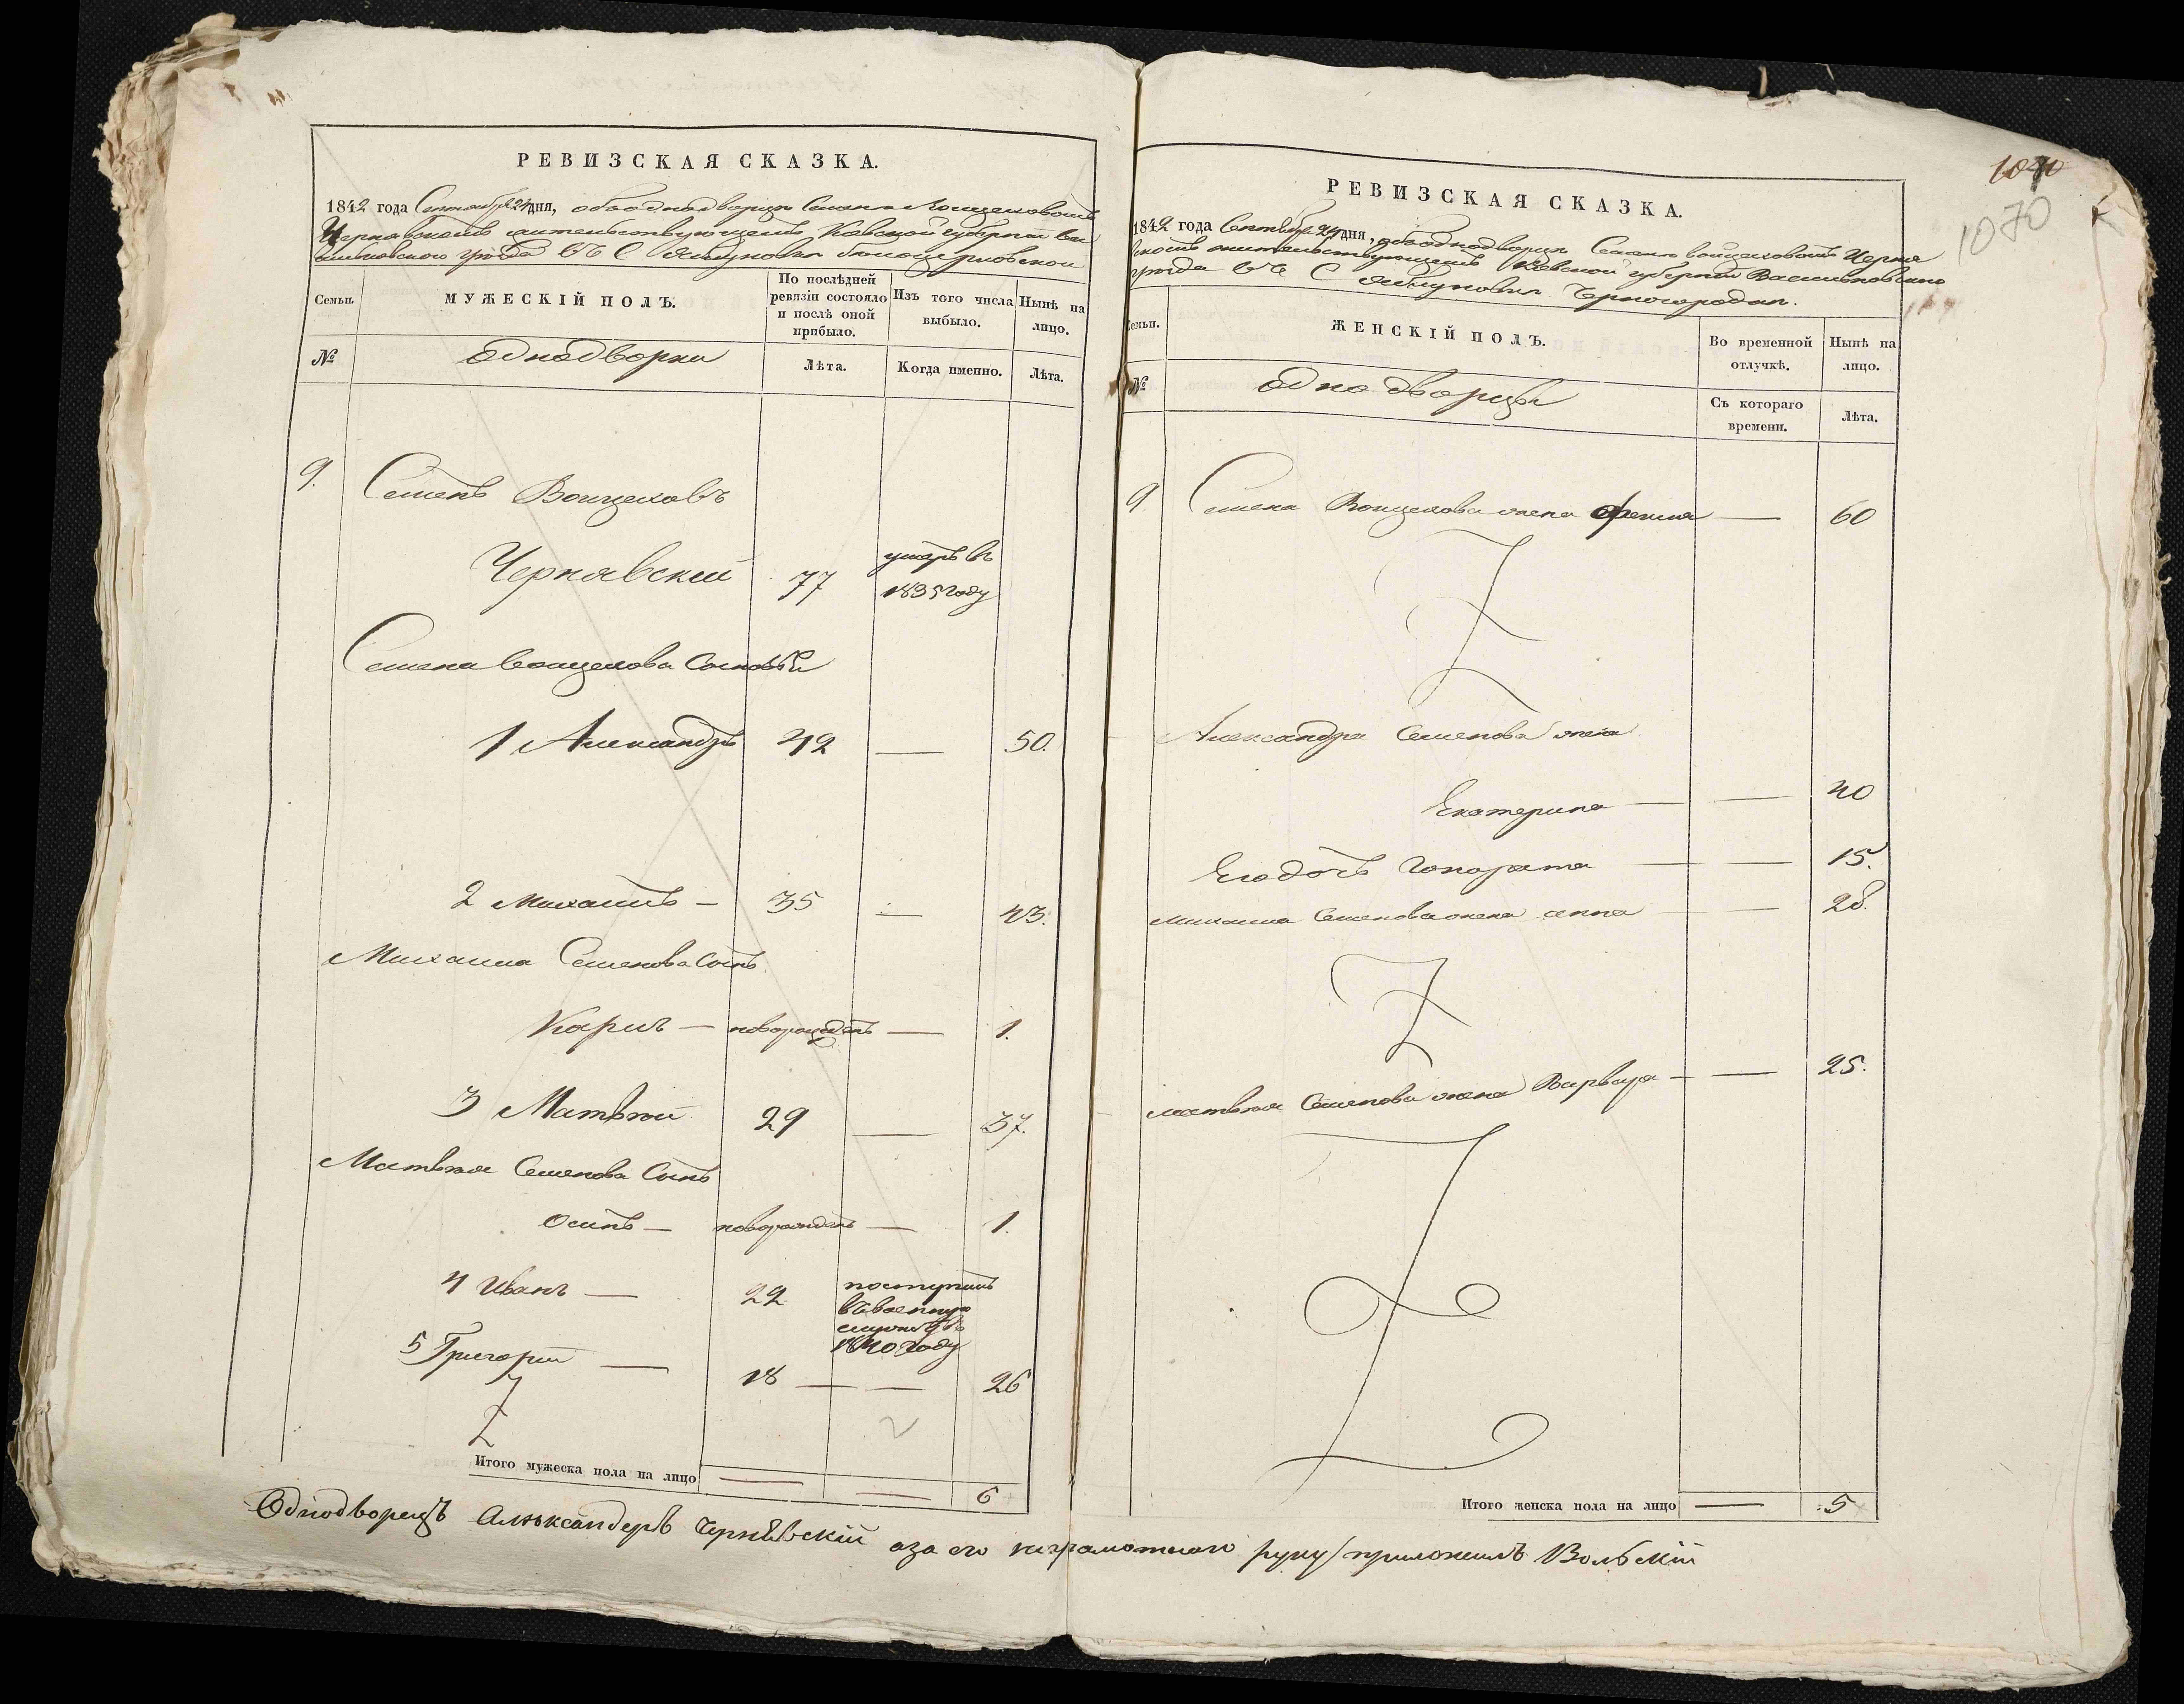 РЕВИЗСКАЯ СКАЗКА.
1842 года Сентября 24 дня, объ однодворцѣ Семенѣ Воицеховомъ
Чернявскомъ жительствующемъ Кіевской губерніи Ва
сильковскаго уѣзда въ С
Семьи.
МУЖЕСКІЙ ПОЛЪ.
По послѣдней ревизіи состояло и послѣ оной прибыло.
Изъ того числа выбыло.
Нынѣ на лицо.
№
однодворки
Лѣта.
Когда именно.
Лѣта.
9. Семенъ Воицеховъ
Чернявскій 77 умеръ въ
1835 году
Семена Воицехова Сыновья
1 Александръ 42 — 50.
2 Михаилъ — 35 — 43.
Михаила Семенова Сынъ
Карлъ — новорожденъ — 1.
3 Матвѣй 29 — 37.
Матвѣя Семенова Сынъ
Осипъ — новорожденъ — 1.
4 Иванъ — 22 поступилъ
въ военную
службу въ
1840 году
5 Григорій — 18 — — 26
Итого мужеска пола на лицо — — 6
РЕВИЗСКАЯ СКАЗКА.
1842 года Сентября 24 дня, объ однодворцѣ Семенѣ Воицеховомъ Черня
вскомъ жительствующемъ Кіевской губерніи Васильковскаго
уѣзда въ С
1040
1070
Семьи.
ЖЕНСКІЙ ПОЛЪ.
Во временной отлучкѣ.
Нынѣ на лицо.
№
однодворцы
Съ котораго времени.
Лѣта.
9 Семена Воицехова жена — 60
Александра Семенова жена
Екатерина — — 40
— — 15.
Михаила Семенова жена анна — — 28.
Матвѣя Семенова жена Варвара — — 25.
Итого женска пола на лицо — 5
Однодворецъ Алѣксандеръ Чернѣвскій аза его неграмотнаго руку приложилъ Вольскій